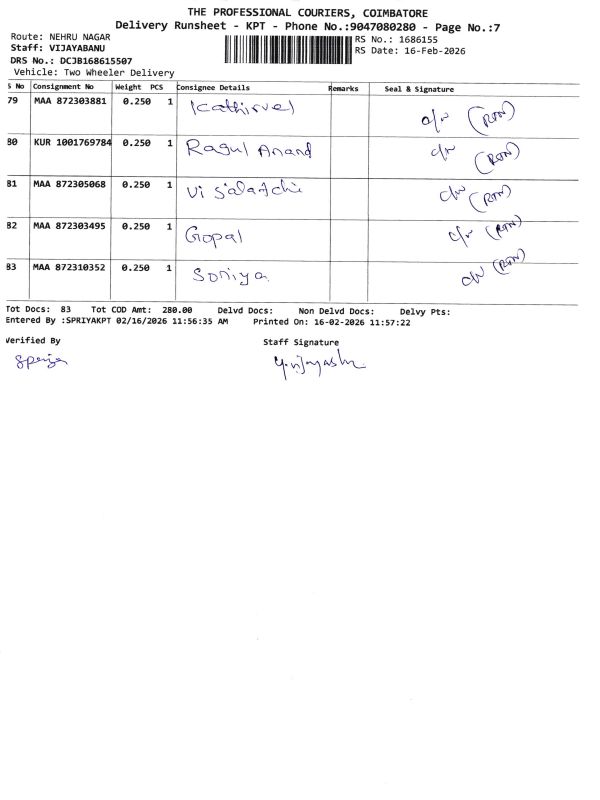 THE PROFESSIONAL COURIERS, COIMBATORE
Delivery Runsheet - KPT - Phone No.:9047080280 - Page No.:7
Route: NEHRU NAGAR
RS No.: 1686155
Staff: VIJAYABANU
RS Date: 16-Feb-2026
DRS No.: DCJB168615507
Vehicle: Two Wheeler Delivery
S No Consignment No Weight PCS Consignee Details Remarks Seal & Signature
79 MAA 872303881 0.250 1 Kathirvel c/n (RTN)
80 KUR 1001769784 0.250 1 Ragul Anand c/n (RTN)
81 MAA 872305068 0.250 1 Visalatchi c/n (RTN)
82 MAA 872303495 0.250 1 Gopal c/n (RTN)
83 MAA 872310352 0.250 1 Soniya c/n (RTN)
Tot Docs: 83 Tot COD Amt: 280.00 Delvd Docs: Non Delvd Docs: Delvy Pts:
Entered By :SPRIYAKPT 02/16/2026 11:56:35 AM Printed On: 16-02-2026 11:57:22
Verified By Staff Signature